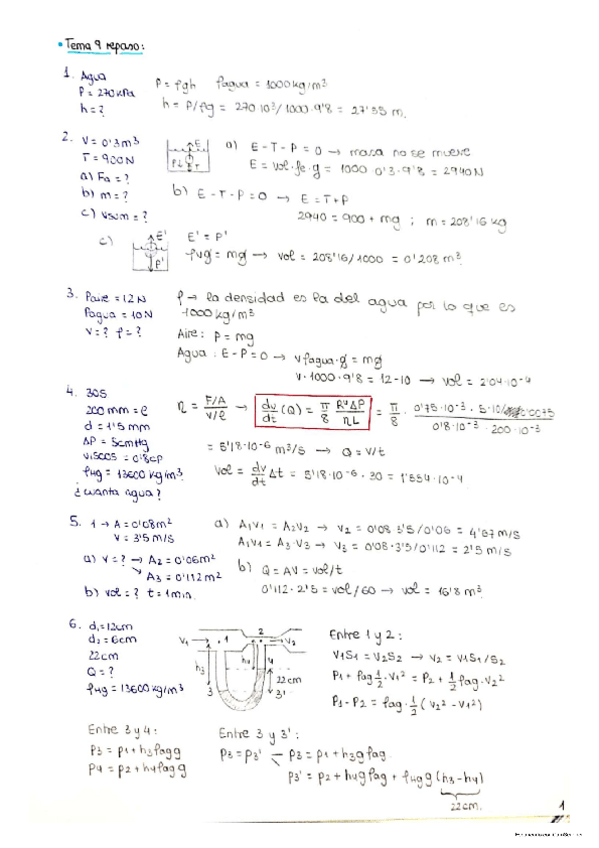 • Tema 9 repaso:
1. Agua
P = 270 kPa
h = ?
P = ρgh ρagua = 1000 kg/m³
h = P/ρg = 270·10³/1000·9'8 = 27'55 m.
2. V = 0'3 m³
T = 900 N
a) Fa = ?
b) m = ?
c) Vsum = ?
E
P T
a) E - T - P = 0 → masa no se mueve
E = Vol·ρe·g = 1000·0'3·9'8 = 2940 N
b) E - T - P = 0 → E = T + P
2940 = 900 + mg ; m = 208'16 kg
c) E'
P'
E' = P'
ρvg = mg → Vol = 208'16/1000 = 0'208 m³
3. Paire = 12 N
Pagua = 10 N
V = ? ρ = ?
ρ → la densidad es la del agua por lo que es
1000 kg/m³
Aire: P = mg
Agua: E - P = 0 → vρagua·g = mg
V·1000·9'8 = 12 - 10 → Vol = 2'04·10⁻⁴
4. 30s
200 mm = l
d = 1'5 mm
ΔP = 5cmHg
Viscos = 0'8cP
ρHg = 13600 kg/m³
¿cuanta agua?
η = F/A / V/l → dv/dt (Q) = π/8 R⁴ΔP/ηL = π/8 · 0'75·10⁻³·5·10/ 0075 / 0'8·10⁻³·200·10⁻³
= 5'18·10⁻⁶ m³/s → Q = V/t
Vol = dv/dt Δt = 5'18·10⁻⁶·30 = 1'554·10⁻⁴
5. 1 → A = 0'08m²
V = 3'5 m/s
a) V = ? → A₂ = 0'06m²
A₃ = 0'112 m²
b) Vol = ? t = 1min.
a) A₁V₁ = A₂V₂ → V₂ = 0'08·3'5/0'06 = 4'67 m/s
A₁V₁ = A₃·V₃ → V₃ = 0'08·3'5/0'112 = 2'5 m/s
b) Q = AV = Vol/t
0'112·2'5 = Vol/60 → Vol = 16'8 m³
6. d₁ = 12cm
d₂ = 6cm
22cm
Q = ?
ρHg = 13600 kg/m³
V₁ 1 2 V₂
h₃ h₄ 4
22 cm
3 3'
Entre 1 y 2:
V₁S₁ = V₂S₂ → V₂ = V₁S₁/S₂
P₁ + ρag ½·V₁² = P₂ + ½ρag·V₂²
P₁ - P₂ = ρag·½(V₂² - V₁²)
Entre 3 y 4:
P₃ = P₁ + h₃ρag g
P₄ = P₂ + h₄ρag g
Entre 3 y 3':
P₃ = P₃' P₃ = P₁ + h₃gρag
P₃' = P₂ + h₄gρag + ρHg g (h₃ - h₄)
22cm.
1